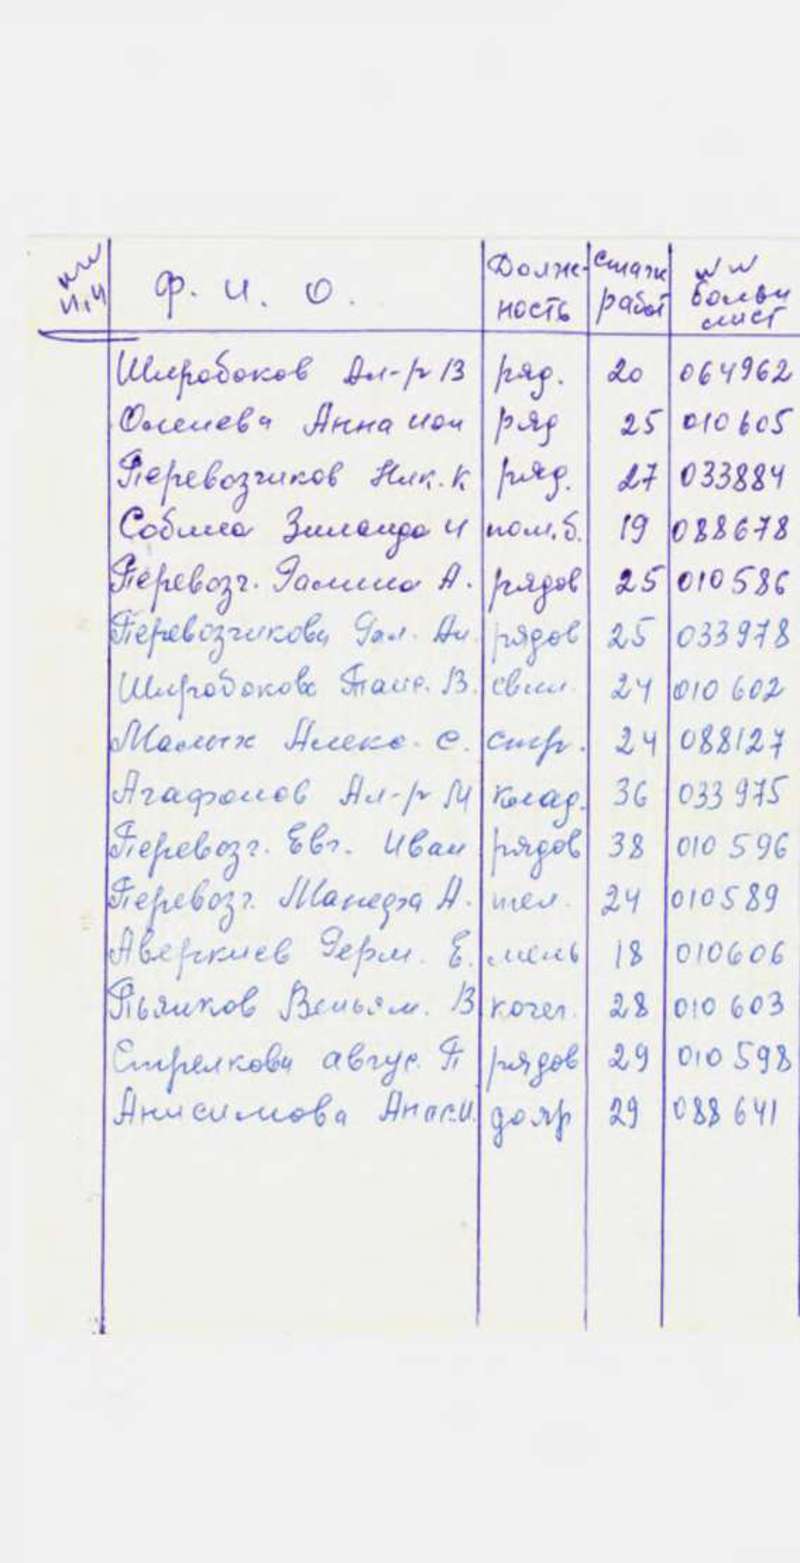 №№ п.п Ф. И. О. Долж-ность Стаж работ №№ больн лист
Широбоков Ал-р В ряд. 20 064962
Оленева Анна ион ряд 25 010605
Перевозчиков Ник. К ряд. 27 033884
Собина Зинаида И пом.б. 19 088678
Перевозч. Галина А. рядов 25 010586
Перевозчикова Гал. Ал. рядов 25 033978
Широбокова Таис. В. свин. 24 010602
Малых Алекс. С. стр. 24 088127
Агафонов Ал-р М клад. 36 033975
Перевозч. Евг. Иван рядов 38 010596
Перевозч. Манефа А. тел. 24 010589
Аверкиев Герм. Е. мель 18 010606
Пьянков Веньям. В кочег. 28 010603
Стрелкова авгус. П рядов 29 010598
Анисимова Анас.И. дояр 29 088641